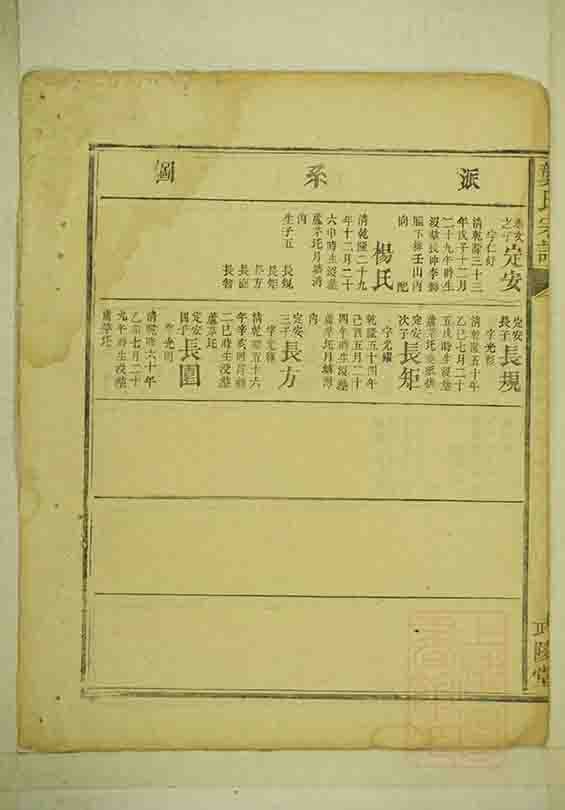 龔氏宗譜
武陵堂
派系圖
之子定安
字仁好
清乾隆三十三
年戊子十二月
二十九午時生
歿葬長冲李獅
腦下穉壬山丙
向 配
楊氏
清乾隆二十九
年十二月二十
六申時生歿葬
蘆茅坵月塘灣
內
生子五 長規
長矩
長方
長圓
長智
定安長子長規
清乾隆五十年
乙巳七月二十
五戌時生歿葬
定安次子長矩
字光耀
乾隆五十四年
己酉五月二十
四午時生歿葬
蘆茅坵月塘灣
內
定安三子長方
清乾隆五十六
年辛亥四月初
二巳時生歿葬
蘆茅坵
定安四子長圓
字光明
清乾隆六十年
乙卯七月二十
九午時生歿葬
蘆茅坵